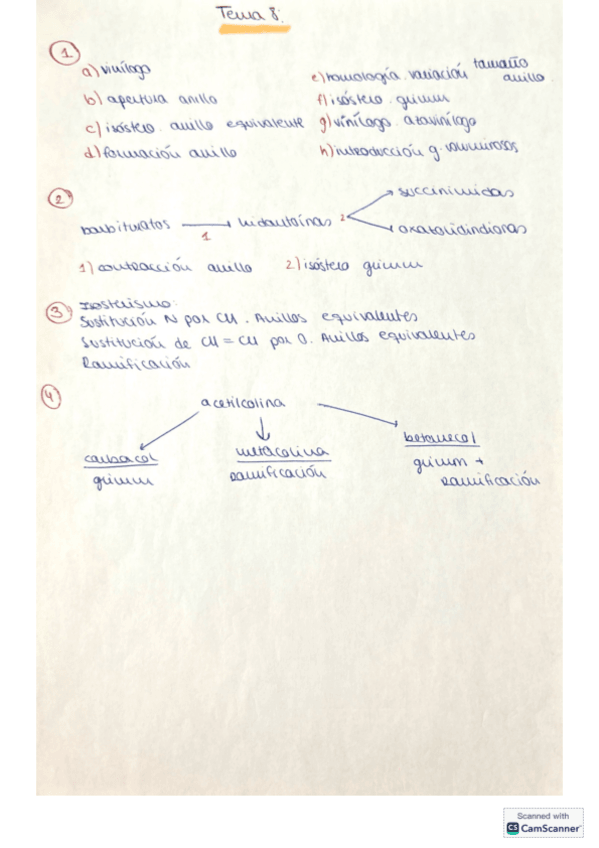 Tema 8:
1
a) vinílogo
b) apertura anillo
c) isóstero. anillo equivalente
d) formación anillo
e) homología. variación tamaño anillo
f) isóstero. grimm
g) vinílogo. azavinílogo
h) introducción g. voluminosos
2
barbituratos → 1 hidantoínas 2 succinimidas
oxazolidindionas
1) contracción anillo 2) isóstero grimm
3
Isosterismo:
Sustitución N por CH. Anillos equivalentes
Sustitución de CH = CH por O. Anillos equivalentes
Ramificación
4
acetilcolina
carbacol
grimm
metacolina
ramificación
betanecol
grimm +
ramificación
Scanned with
CS CamScanner